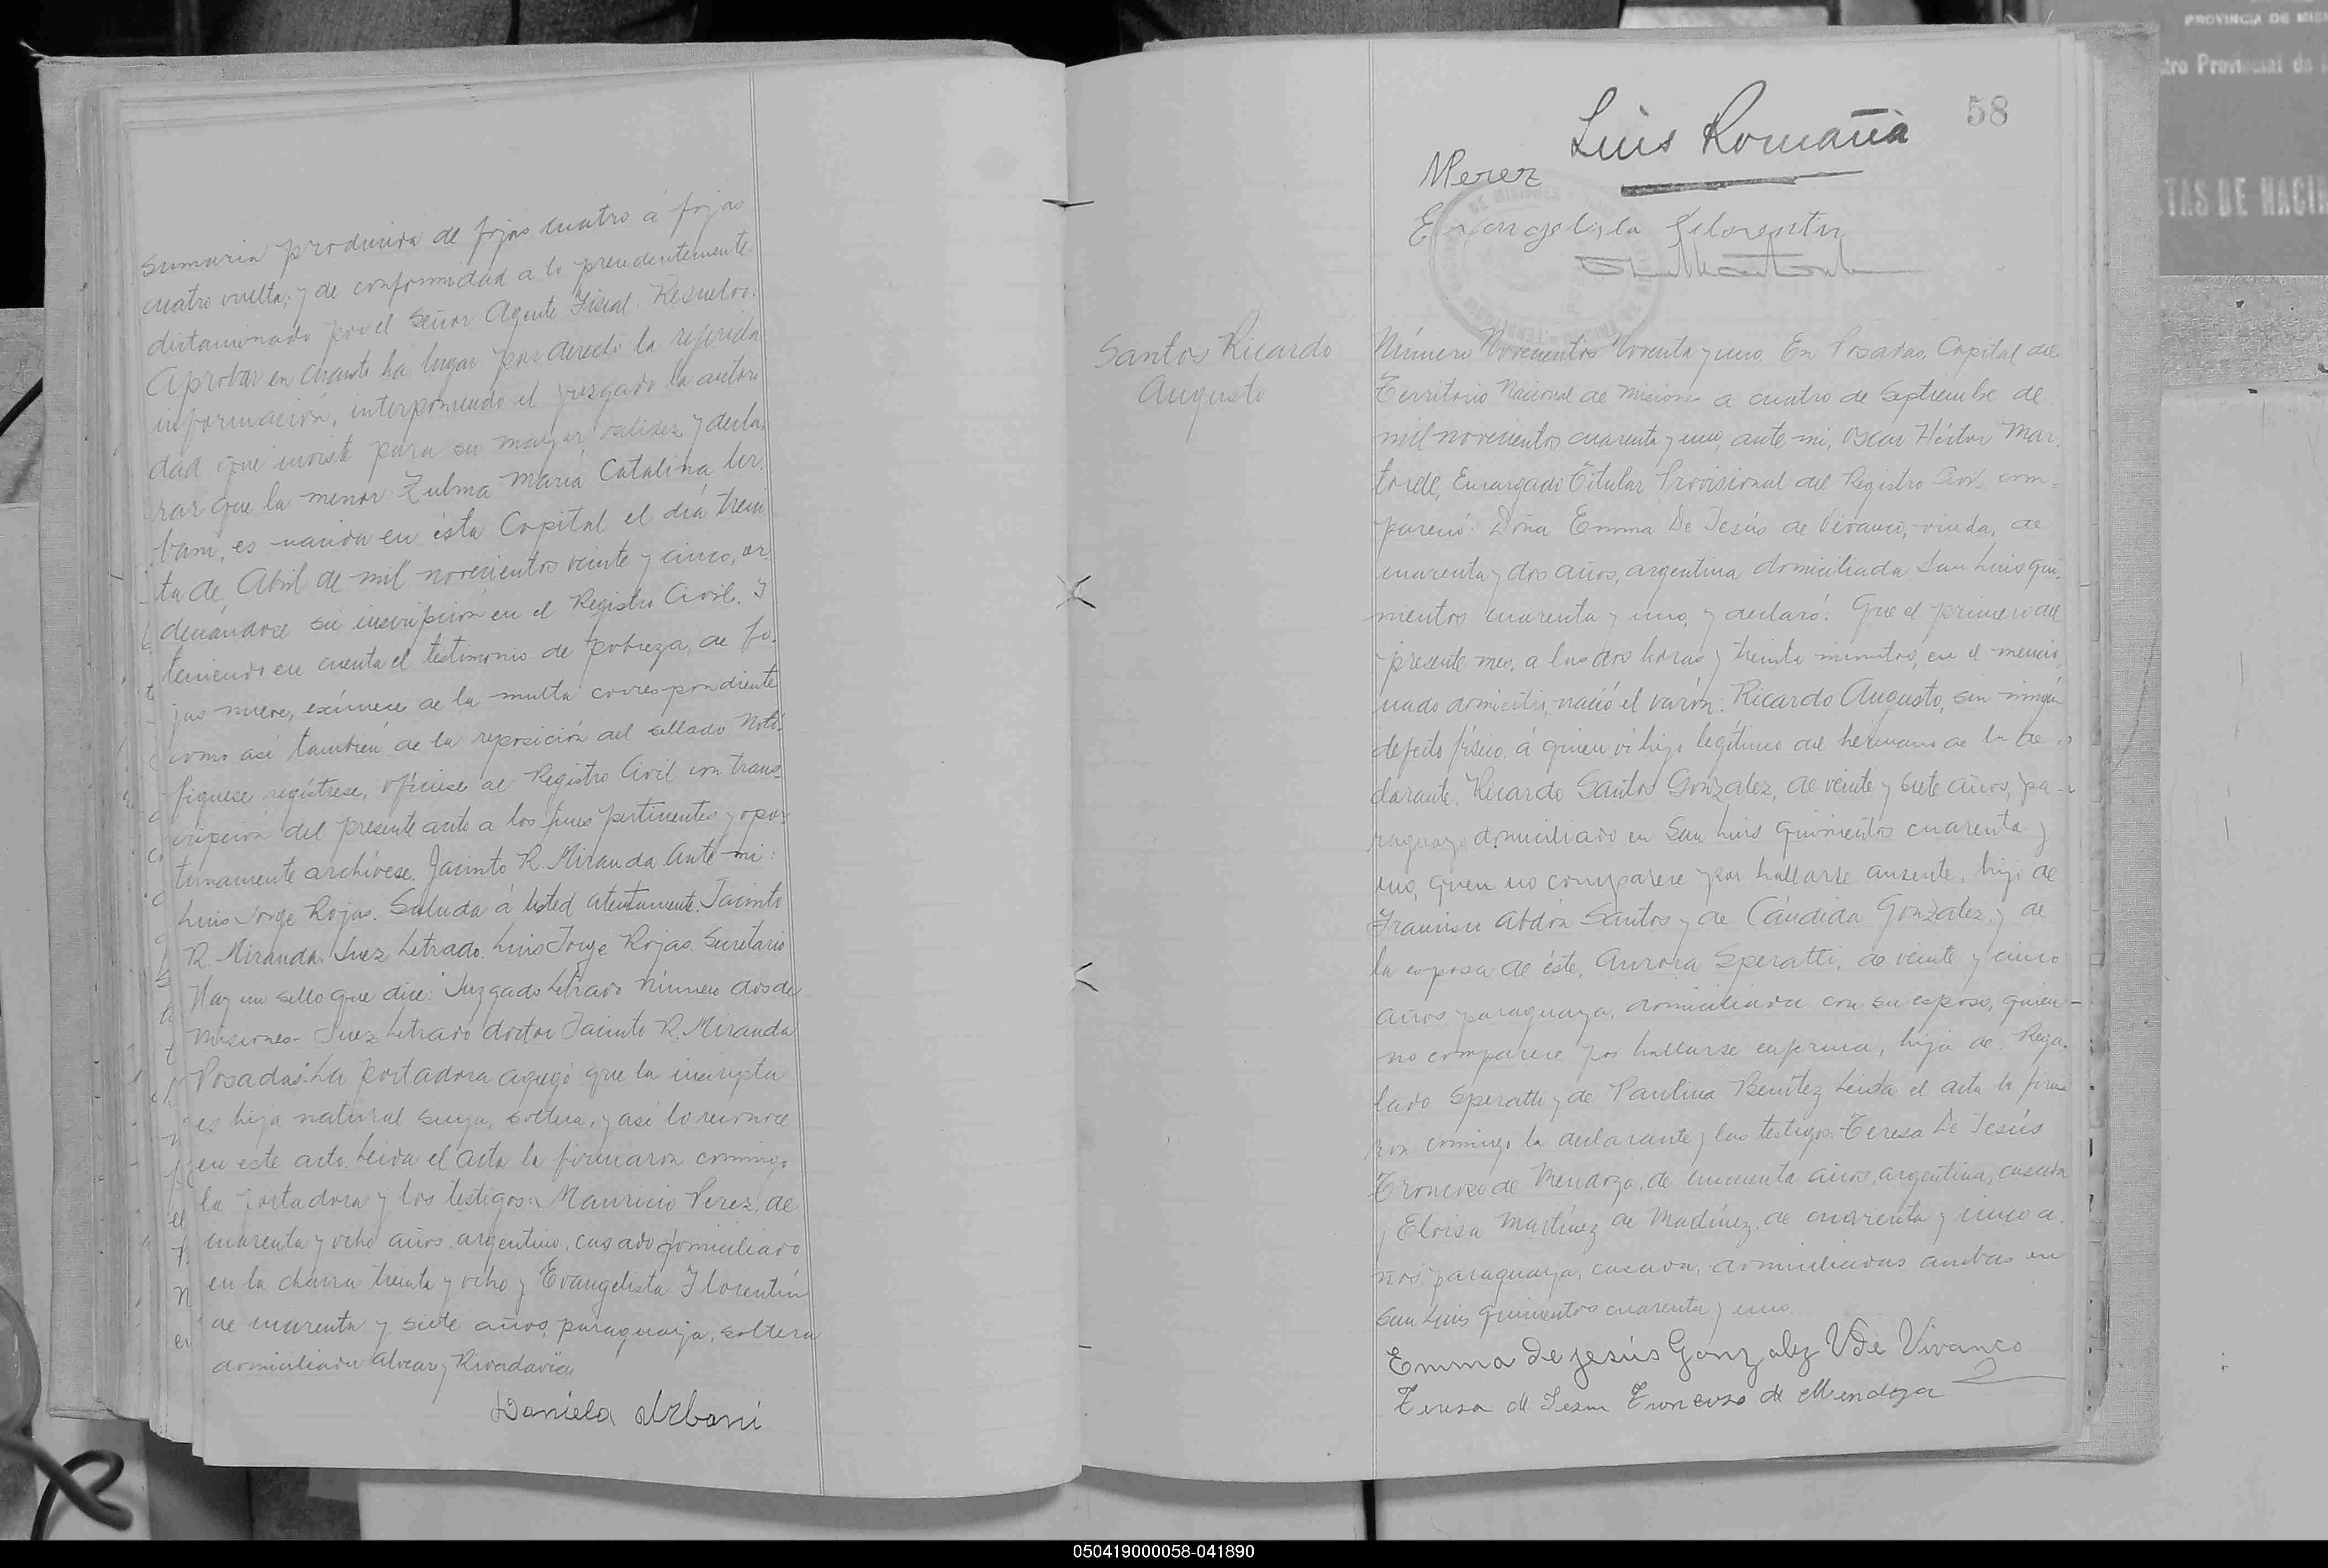 sumaria producida de fojas cuatro á fojas
cuatro vuelta; y de conformidad a lo precedentemente
dictaminado por el Señor Agente Fiscal. Resuelvo.
Aprobar en cuanto ha lugar por derecho la referida
información, interponiendo el juzgado la autori
dad que inviste para su mayor validez y decla,
rar que la menor: Zulma María Catalina Ur.
bani, es nacida en ésta Capital el día trein
ta de Abril de mil novecientos veinte y cinco, or
denándose su inscripción en el Registro Civil. Y
teniendo en cuenta el testimonio de pobreza, de fo.
jas nueve, exímese de la multa correspondiente
como así también de la reposición del sellado Noti
fíquese regístrese, ofíciese al Registro Civil con trans_
cripción del presente auto a los fines pertinentes y opor
tunamente archívese. Jacinto R. Miranda Ante mi:
Luis Jorge Rojas. Saluda á Usted atentamente. Jacinto
R. Miranda. Juez Letrado. Luis Jorge Rojas. Secretario
Hay un sello que dice: Juzgado Letrado Número dos de
Misiones- Juez Letrado doctor Jacinto R. Miranda
Posadas. La portadora agregó que la inscripta
es hija natural suya, soltera, y así lo reconoce
en este acto. Leida el acta la firmaron conmigo
la portadora y los testigos: Mauricio Perez, de
cuarenta y ocho años, argentino, casado domiciliado
en la chacra treinta y ocho y Evangelista Florentín
de cuarenta y siete años, paraguaya, soltera
domiciliada Alvear y Rivadavia
Daniela Urbani
58
Luis Romañá
MPerez
Evangelista Florentin
Santos Ricardo
Augusto
Número Novecientos Noventa y uno. En Posadas, Capital del
Territorio Nacional de Misiones a cuatro de Septiembre de
mil novecientos cuarenta y uno, ante mi, Oscar Héctor Mar.
torell, Encargado Titular Provisional del Registro Civil com-
pareció: Doña Emma De Jesús de Vivanco, viuda, de
cuarenta y dos años, argentina domiciliada San Luis qui.
nientos cuarenta y uno, y declaró: Que el primero del
presente mes, a las dos horas y treinta minutos, en el mencio
nado domicilio, nació el varón: Ricardo Augusto, sin ningún
defecto físico, á quien ví hijo legítimo del hermano de la de
clarante, Ricardo Santos Gonzalez, de veinte y siete años, pa-
raguayo domiciliado en San Luis quinientos cuarenta y
uno, quien no comparece por hallarse ausente, hijo de
Francisco Abdón Santos y de Cándida Gonzalez, y de
la esposa de éste, Aurora Speratti, de veinte y cinco
años paraguaya, domiciliada con su esposo, quien-
no comparece por hallarse enferma, hija de Rega.
lado Speratti y de Paulina Benítez Leida el acta la firma
ron conmigo la declarante y los testigos: Teresa De Jesús
Troncoso de Mendoza, de cincuenta años, argentina, casada
y Eloisa Martínez de Madínez, de cuarenta y cinco a.
ños, paraguaya, casada, domiciliadas ambas en
San Luis quinientos cuarenta y uno
Emma De jesús Gonzalez Vde Vivanco
Teresa de Jesus Troncoso de Mendoza
PROVINCIA DE MIS
tro Provincial de
TAS DE NACI
050419000058-041890